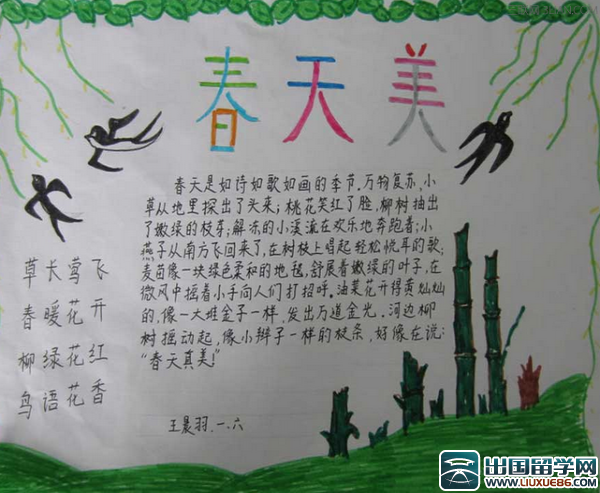 春天美
春天是如诗如歌如画的季节,万物复苏,小
草从地里探出了头来;桃花笑红了脸,柳树抽出
了嫩绿的枝芽;解冻的小溪流在欢乐地奔跑着;小
燕子从南方飞回来了,在树枝上唱起轻松悦耳的歌;
麦苗像一块绿色柔和的地毯,舒展着嫩绿的叶子,在
微风中摇着小手向人们打招呼。油菜花开得黄灿灿
的,像一大堆金子一样,发出万道金光。河边柳
树摇动起,像小辫子一样的枝条,好像在说:
“春天真美!”
王晨羽.一.六
草长莺飞
春暖花开
柳绿花红
鸟语花香
出国留学网
WWW.LIUXUE86.COM